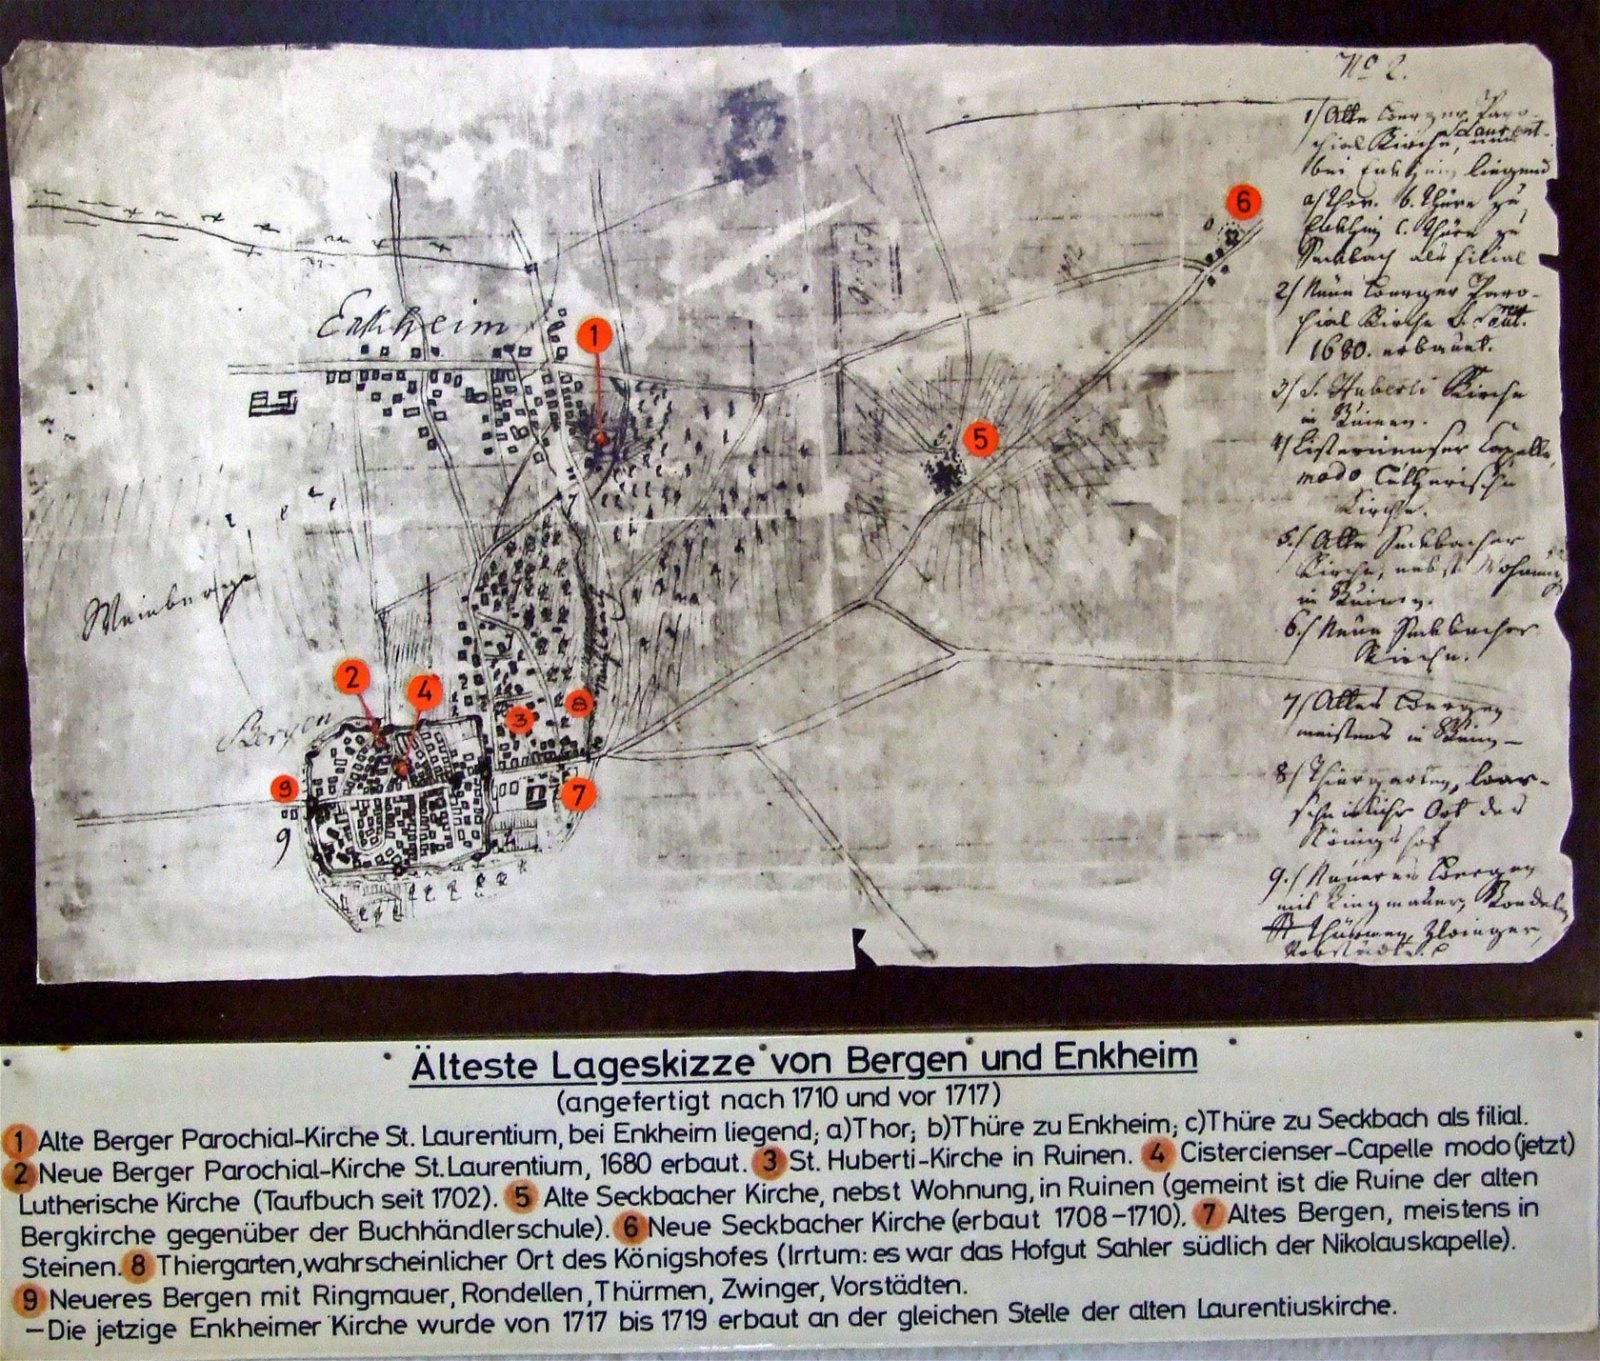 No 2.
1/ Alte Berger Paro-
chial Kirche, S. Laurent.
bei Enkheim liegend
a/ Thor. b. Thüre zu
Enkheim c. Thüre zu
Seckbach als filial
2/ Neue Berger Paro-
chial Kirche S. Laurent.
1680. erbauet.
3/ S. Huberti Kirche
in Ruinen.
4/ Cistercienser Capelle,
modo Lutherische
Kirche.
5./ Alte Seckbacher
Kirche, nebst Wohnung
in Ruinen.
6./ Neue Seckbacher
Kirche.
7/ Altes Bergen
meistens in
8/ Thiergarten, wahr-
scheinlicher Ort des
Königshof
9./ Neueres Bergen
mit Ringmauer, Rondelen,
Thürmen, Zwinger,
Vorstädte.
Enkheim
Weinberge
Bergen
9
1
2
3
4
5
6
7
8
9
Älteste Lageskizze von Bergen und Enkheim
(angefertigt nach 1710 und vor 1717)
1 Alte Berger Parochial-Kirche St. Laurentium, bei Enkheim liegend; a)Thor; b)Thüre zu Enkheim; c)Thüre zu Seckbach als filial.
2 Neue Berger Parochial-Kirche St. Laurentium, 1680 erbaut. 3 St. Huberti-Kirche in Ruinen. 4 Cistercienser-Capelle modo (jetzt)
Lutherische Kirche (Taufbuch seit 1702). 5 Alte Seckbacher Kirche, nebst Wohnung, in Ruinen (gemeint ist die Ruine der alten
Bergkirche gegenüber der Buchhändlerschule). 6 Neue Seckbacher Kirche (erbaut 1708-1710). 7 Altes Bergen, meistens in
Steinen. 8 Thiergarten, wahrscheinlicher Ort des Königshofes (Irrtum: es war das Hofgut Sahler südlich der Nikolauskapelle).
9 Neueres Bergen mit Ringmauer, Rondellen, Thürmen, Zwinger, Vorstädten.
—Die jetzige Enkheimer Kirche wurde von 1717 bis 1719 erbaut an der gleichen Stelle der alten Laurentiuskirche.